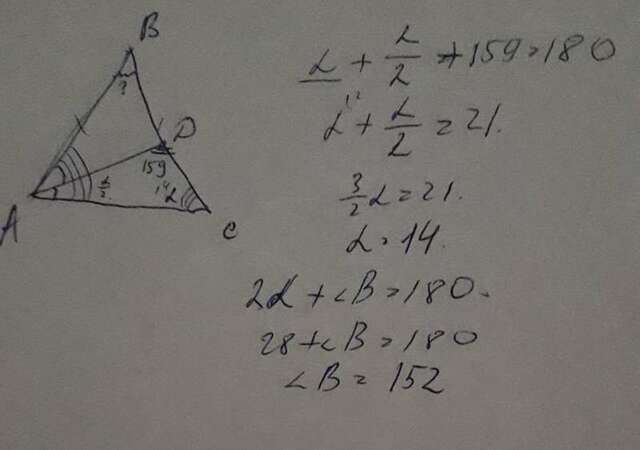 B
?
D
159
α/2
14
α
A
C
α + α/2 + 159 = 180
α + α/2 = 21.
3/2 α = 21.
α = 14.
2α + ∠B = 180.
28 + ∠B = 180
∠B = 152